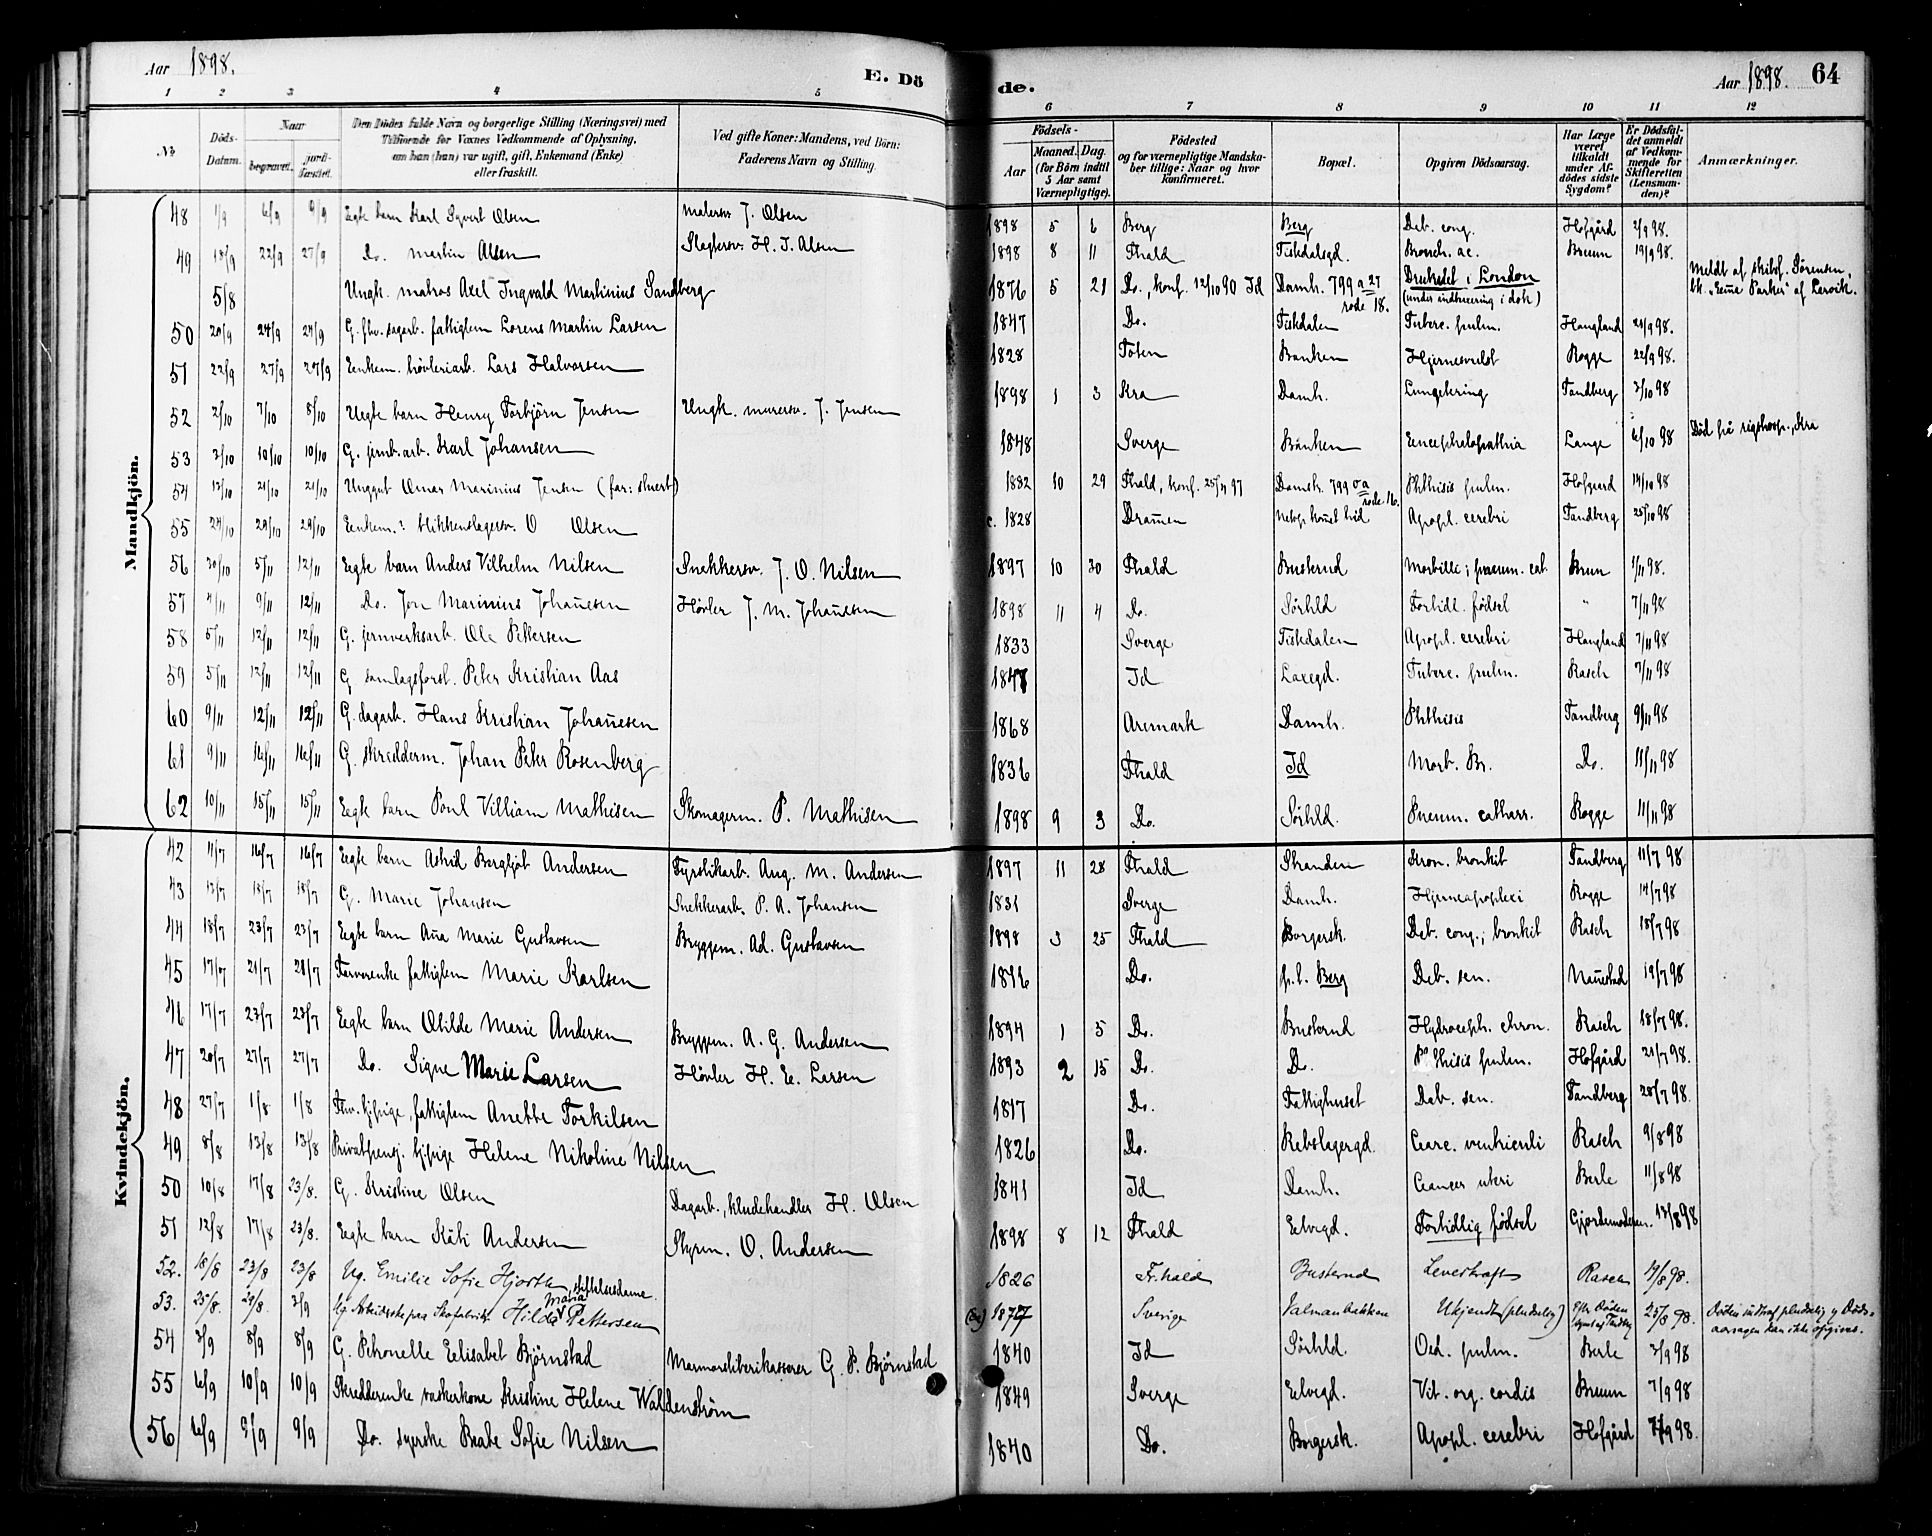 Aar 1898.
E. Dö
de.
Aar 1898. 64
1 2 3 4 5 6 7 8 9 10 11 12
No
Döds-Datum.
Naar
begravet.
jord-fæstet.
Den Dödes fulde Navn og borgerlige Stilling (Næringsvei) med
Tilföiende for Voxnes Vedkommende af Oplysning,
om han (hun) var ugift, gift, Enkemand (Enke)
eller fraskilt.
Ved gifte Koner: Mandens, ved Börn:
Faderens Navn og Stilling.
Födsels-
Aar
Maaned. Dag.
(for Börn indtil 5 Aar samt Værnepligtige).
Födested
og for værnepligtige Mandskaber tillige: Naar og hvor konfirmeret.
Bopæl.
Opgiven Dödsaarsag.
Har Læge været tilkaldt under Afdödes sidste Sygdom?
Er Dödsfaldet anmeldt af Vedkommende for Skifteretten (Lensmanden)?
Anmærkninger.
Mandkjön.
48 1/9 6/9 9/9 Egte barn Karl Syvert Olsen Malersv. J. Olsen 1898 5 6 Berg Berg Deb. cong. Hofgård 2/9 98.
49 18/9 22/9 27/9 Do. Martin Olsen Slagtersv. H. J. Olsen 1898 8 11 Fhald Fiskdalsgd. Bronch. ac. Bruun 19/9 98.
5/8 Ungk. matros Axel Ingvald Martinius Sandberg 1876 5 21 Do., konf. 12/10 90 Id Damh. 799 a 27 rode 18. Druknet i London (under indhuering i dok) Meldt af skibsf. Sörensen, bk. "Erme Parker" af Larvik.
50 20/9 24/9 24/9 G. fhv. dagarb. fattiglem Lorens Martin Larsen 1847 Do. Fiskdalen Tuberc. pulm. Haugland 21/9 98.
51 22/9 27/9 27/9 Enkem. hövleriarb. Lars Halvorsen 1828 Toten Banken Hjernesvulst Rogge 22/9 98.
52 2/10 7/10 8/10 Uegte barn Henry Torbjörn Jensen Ungk. murersv. J. Jensen 1898 1 3 Kra Damh. Lungetæring Tandberg 3/10 98
53 3/10 10/10 10/10 G. jernb.arb. Karl Johansen 1848 Sverge Banken Encephalopathia Lange 6/10 98 Död på rigshosp., Kra
54 13/10 21/10 21/10 Unggut Omar Marinius Jensen (far: stuert) 1882 10 29 Fhald, konf. 25/4 97 Damh. 799 a rode 16. Phthisis pulm. Hofgaard 14/10 98
55 24/10 29/10 29/10 Enkem.? blikkenslagersv. O Olsen c. 1828 Dramen Apopl. cerebri Tandberg 25/10 98
56 30/10 5/11 12/11 Egte barn Anders Vilhelm Nilsen Snekkersv. J. O. Nilsen 1897 10 30 Fhald Busterud Morbilli; pneum. cat. Brun 1/11 98.
57 4/11 9/11 12/11 Do. Jon Marinius Johannesen Hövler J. M. Johannesen 1898 11 4 Do. Sörhld Fortidl. födsel " 7/11 98
58 5/11 12/11 12/11 G. jernverksarb. Ole Pettersen 1833 Sverge Fiskdalen Apopl. cerebri Haugland 7/11 98
59 5/11 12/11 12/11 G samlagsforst. Peter Kristian Aas 1847 Id Laxegd. Tuberc. pulm. Rasch 7/11 98
60 9/11 12/11 12/11 G. dagarb. Hans Kristian Johannesen 1868 Aremark Damh. Phthisis Tandberg 9/11 98
61 9/11 16/11 16/11 G. skrædderm. Johan Peter Rosenberg 1836 Fhald Id Morb. Br. Do. 11/11 98
62 10/11 15/11 15/11 Egte barn Poul Villiam Mathisen Skomagerm. P. Mathisen 1898 9 3 Do. Sörhld. Pneum. catharr. Rogge 11/11 98
Kvindekjön.
42 11/7 16/7 16/7 Egte barn Astrid Bergljot Andersen Fyrstikarb. Aug. M. Andersen 1897 11 28 Fhald Stranden Kron. bronkit Tandberg 11/7 98
43 13/7 18/7 18/7 G. Marie Johansen Snekkerarb. P. A. Johansen 1831 Sverge Damh. Hjerneapoplexi Rogge 14/7 98
44 18/7 23/7 23/7 Egte barn Anna Marie Gustavsen Bryggem. Ad. Gustavsen 1898 3 25 Fhald Borgersk. Deb. cong.; bronkit Rasch 18/7 98
45 17/7 21/7 21/7 Farverenke fattiglem Marie Karlsen 1816 Do. p.t. Berg Deb. sen. Naustad 19/7 98
46 17/7 23/7 23/7 Egte barn Otilde Marie Andersen Bryggem. A. G. Andersen 1894 1 5 Do. Busterud Hydroceph. chron. Rasch 18/7 98.
47 20/7 27/7 27/7 Do. Signe Marie Larsen Hövler H. E. Larsen 1893 2 15 Do. D. Phthisis pulm. Hofgård 21/7 98.
48 27/7 1/8 1/8 Fhv. tj.pige, fattiglem Anette Torkilsen 1817 Do. Fattighuset Deb. sen. Tandberg 28/7 98.
49 8/8 13/8 13/8 Privatpensj. tj.pige Helene Nikoline Nilsen 1826 Do. Rebslagergd. Carc. ventriculi Rasch 9/8 98
50 10/8 17/8 23/8. G. Kristine Olsen Dagarb., kludehandler H. Olsen 1841 Id Damh. Cancer uteri Berle 11/8 98
51 12/8 17/8 23/8. Egte barn Käti Andersen Styrm. O. Andersen 1898 8 12 Fhald Elvegd. Fortidlig födsel Gjordemoderen. 13/8 98
52. 18/8 23/8 23/8 Ug. Emilie Sofie Hjorth, stiftelsesdame. 1826 Fr.hald Busterud Leverkræft Rasch 19/8 98.
53. 25/8. 29/8. 3/9 Ug. Arbeiderske paa Skofabrik Hilda Maria Pettersen (Ca) 1877 Sverige Valmanbakken Ukjendt (pludselig) Efter Döden synet af Tandbg 25/8 98. Döden indtraf pludselig og Dödsaarsagen kan ikke opgives.
54 3/9 8/9 8/9 G. Petronelle Elisabet Björnstad Marmorsliberikasserer G. P. Björnstad 1840 Id Sörhld. Oed. pulm. Berle 3/9 98
55 6/9 10/9 10/9 Skredderenke vaskerkone Kristine Helene Waldenström 1849 Sverge Elvegd. Vit. org. cordis Bruun 7/9 98
56 6/9 9/9 9/9 Do. syerske Beate Sofie Nilsen 1840 Do. Borgersk. Apopl. cerebri Hofgård 7/9 98.